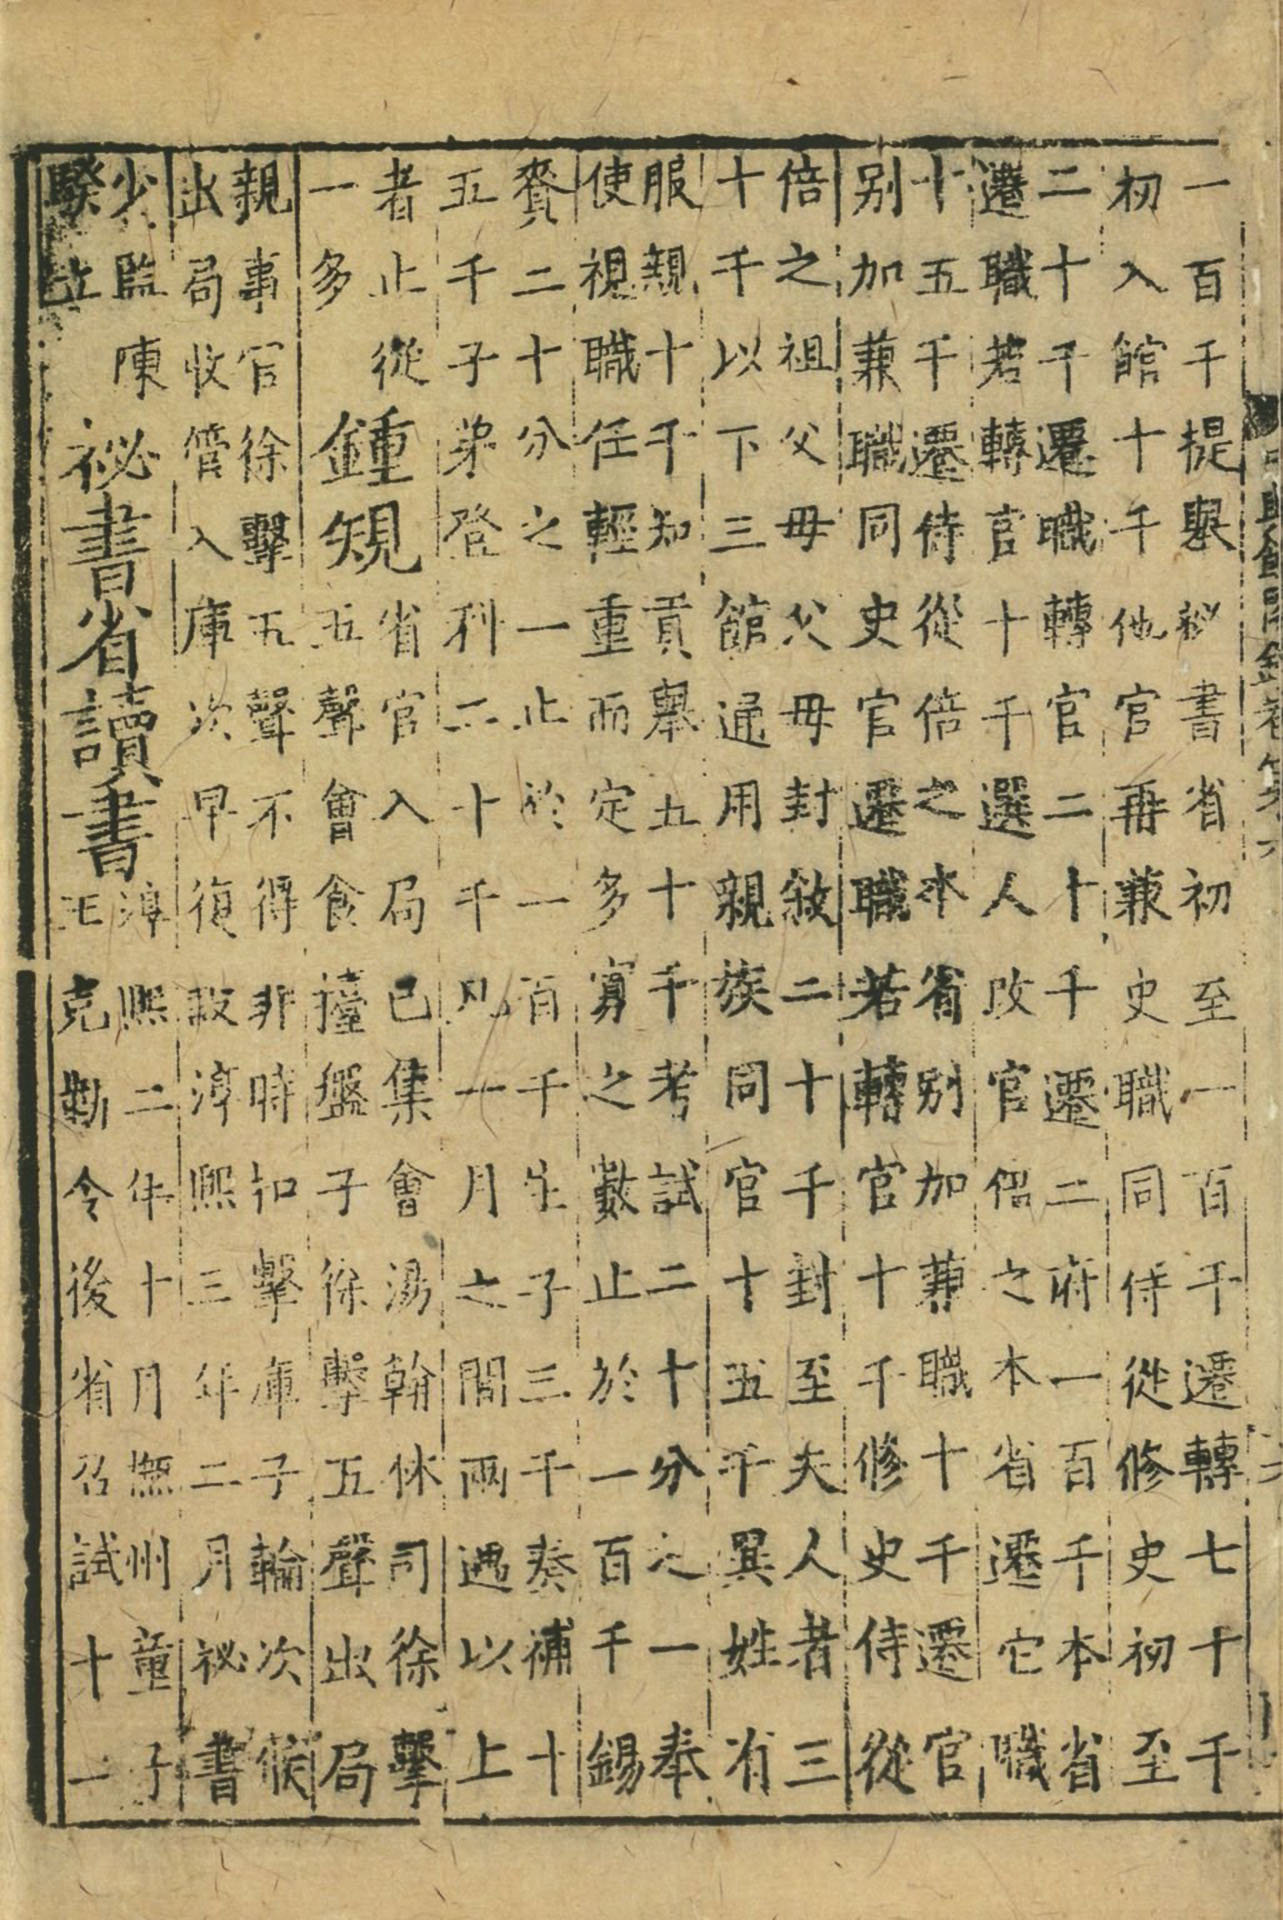 中興館閣錄卷第六
一百千提舉祕書省初至一百千遷轉七十千
初入館十千他官再兼史職同侍從修史初至
二十千遷職轉官二十千遷二府一百千本省
遷職若轉官十千選人改官倍之本省遷它職
十五千遷侍從倍之本省别加兼職十千遷官
别加兼職同史官遷職若轉官十千修史侍從
倍之祖父母父母封敘二十千封至夫人者三
十千以下三館通用親族同官十五千異姓有
服親十千知貢舉五十千考試二十分之一奉
使視職任輕重而定多寡之數止於一百千錫
賚二十分之一止於一百千生子三千奏補十
五千子弟登科二十千凡一月之間兩遇以上
者止從
一多
鍾規
省官入局已集會湯翰休司徐擊
五聲會食擡盤子徐擊五聲出局
親事官徐擊五聲不得非時扣擊庫子輪次候
出局收管入庫次早復設淳熙三年二月祕書
少監陳
騤立
祕書省讀書
淳熙二年十月撫州童子
王克勤令後省召試十一